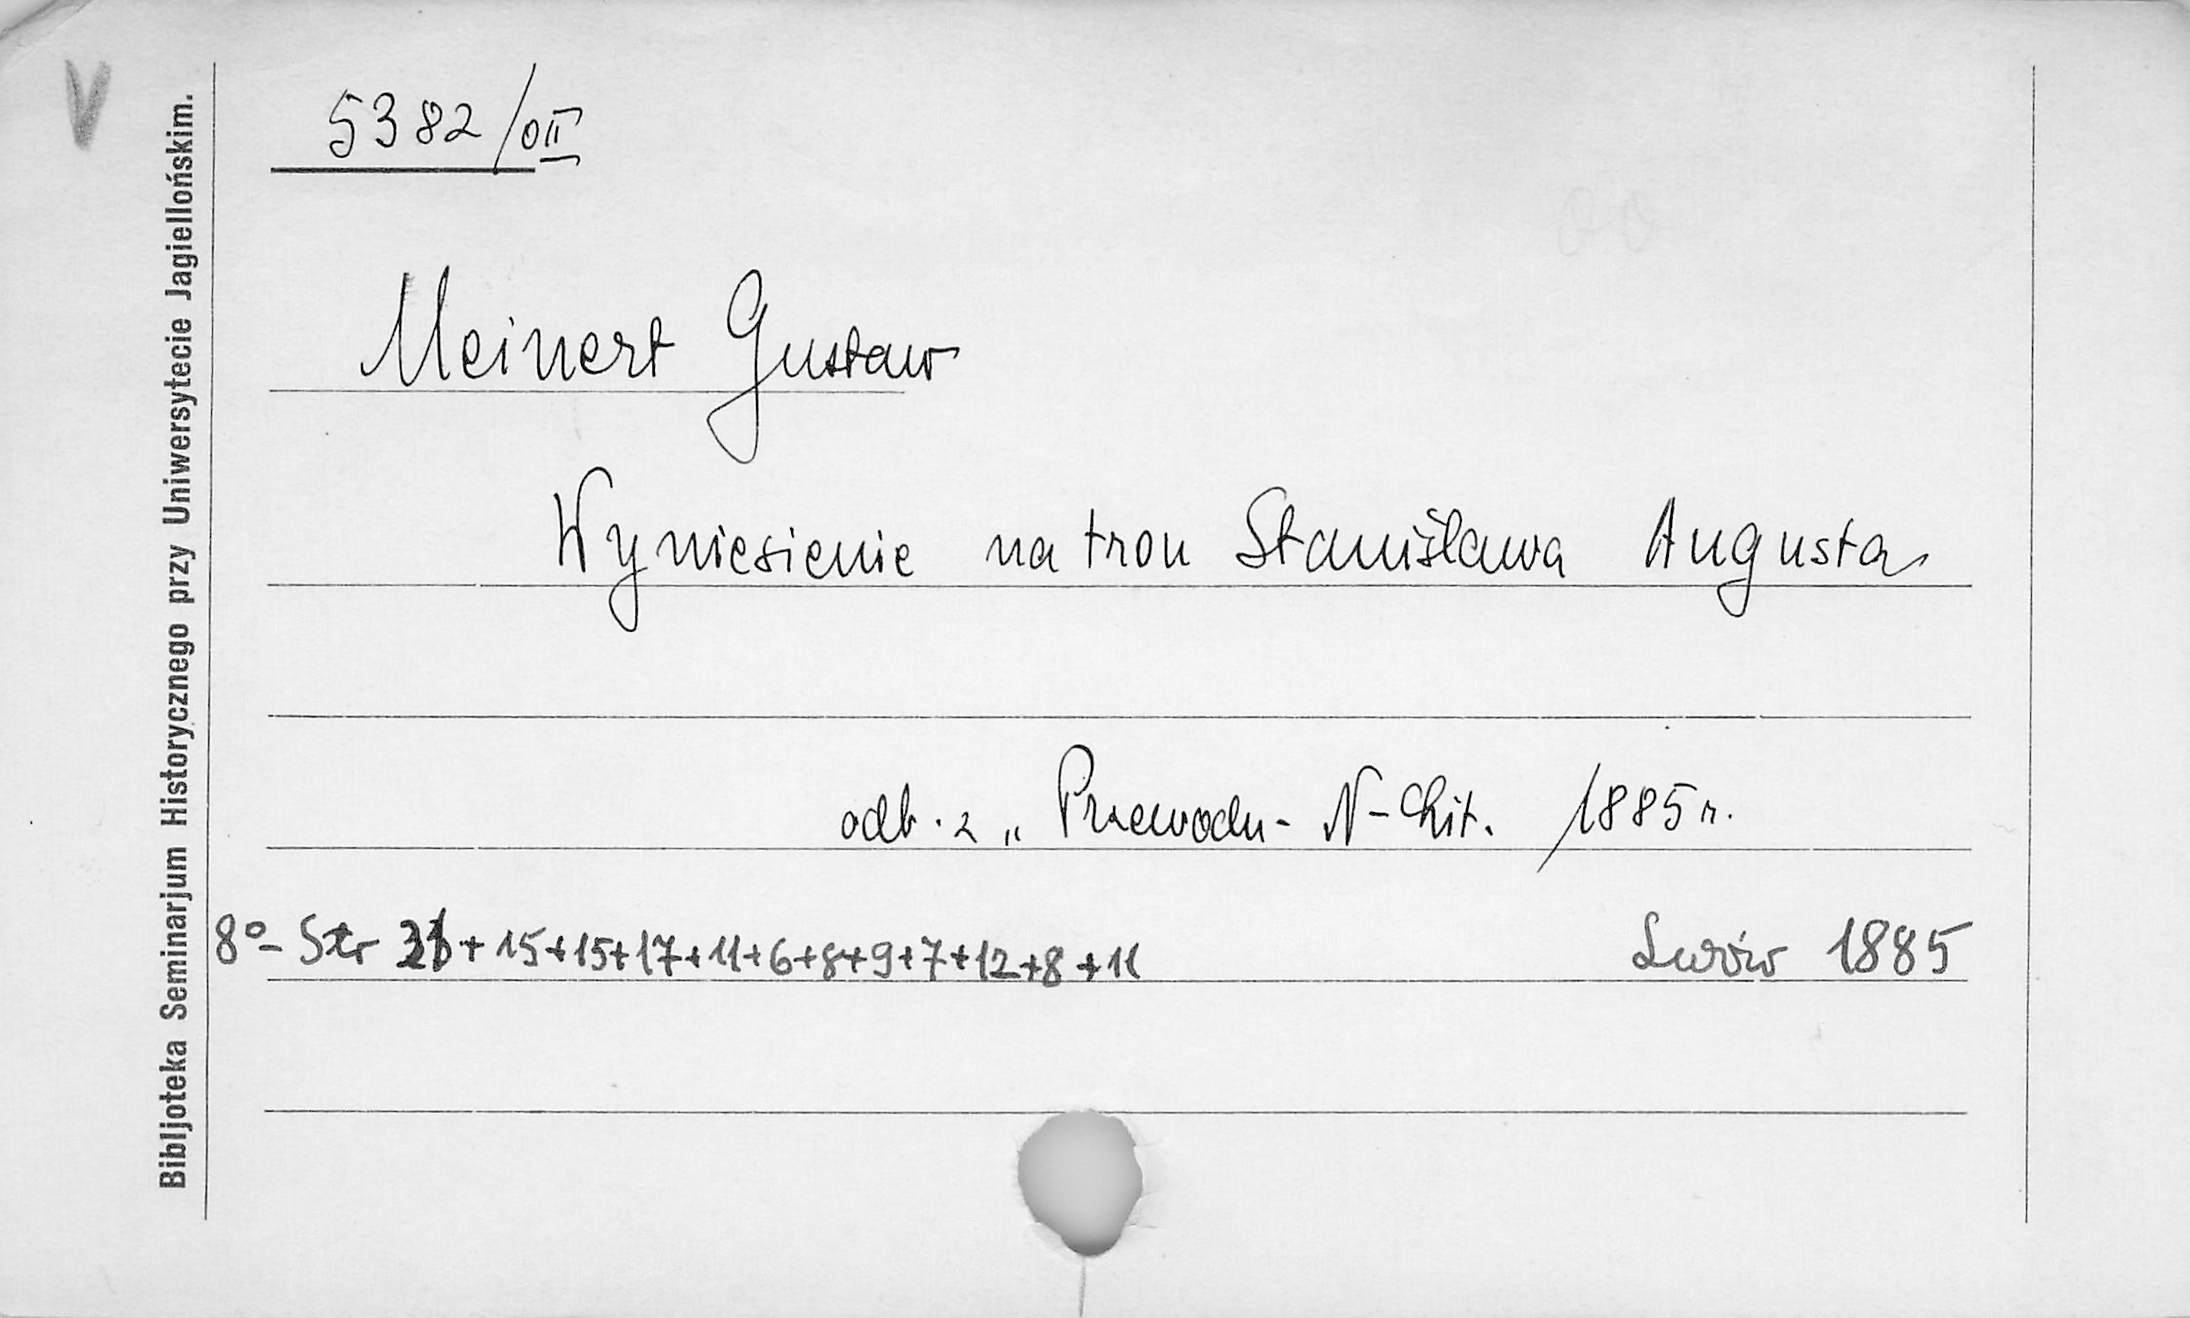 V
5382/OII
Meinert Gustaw
Wyniesienie na tron Stanisława Augusta
odb. z „Przewodu- N-Lit. 1885 r.
8°- Str + 15+15+17+11+6+8+9+7+12+8+11 Lwów 1885
Bibljoteka Seminarjum Historycznego przy Uniwersytecie Jagiellońskim.